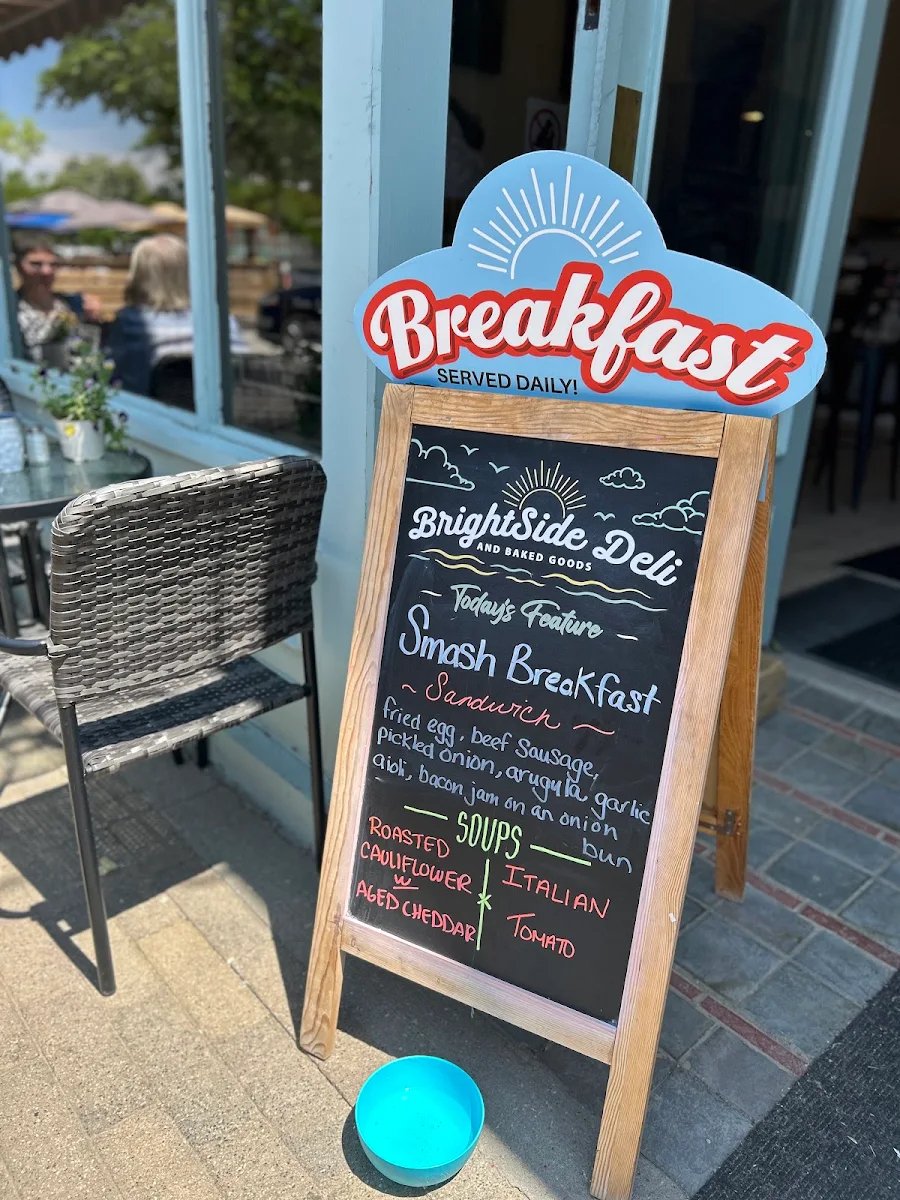 Breakfast
SERVED DAILY!
BrightSide Deli
AND BAKED GOODS
Today's Feature
Smash Breakfast
~ Sandwich ~
fried egg, beef sausage,
pickled onion, arugula, garlic
aioli, bacon jam on an onion
bun
SOUPS
ROASTED
CAULIFLOWER
w
AGED CHEDDAR
ITALIAN
TOMATO